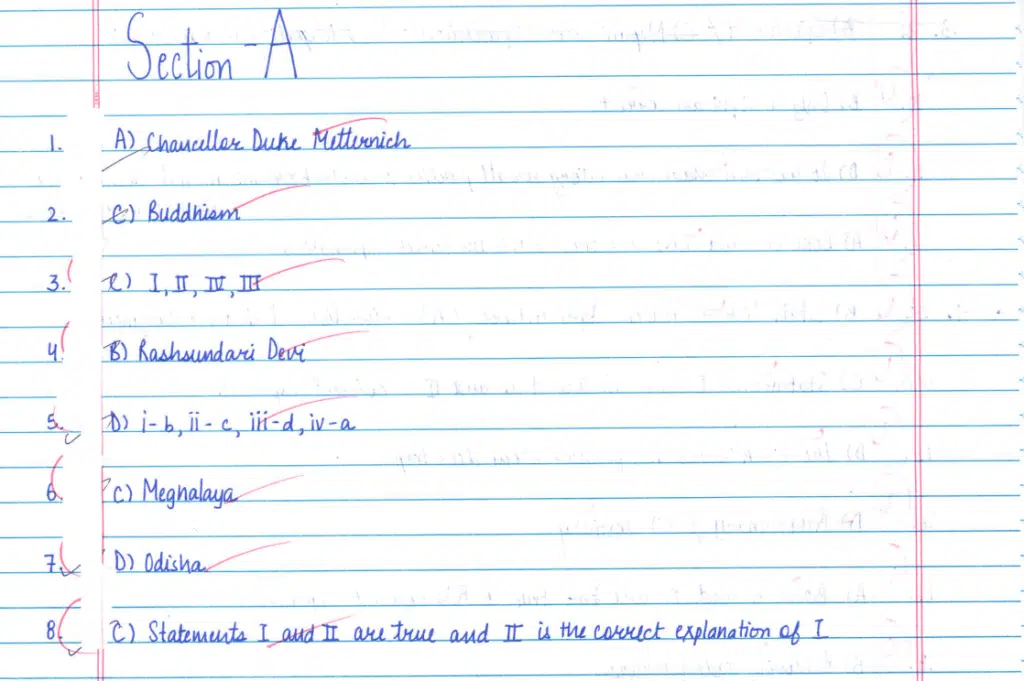 Section - A
1. A) Chancellor Duke Metternich
2. C) Buddhism
3. C) I, II, IV, III
4. B) Rashsundari Devi
5. D) i-b, ii-c, iii-d, iv-a
6. C) Meghalaya
7. D) Odisha
8. C) Statements I and II are true and II is the correct explanation of I